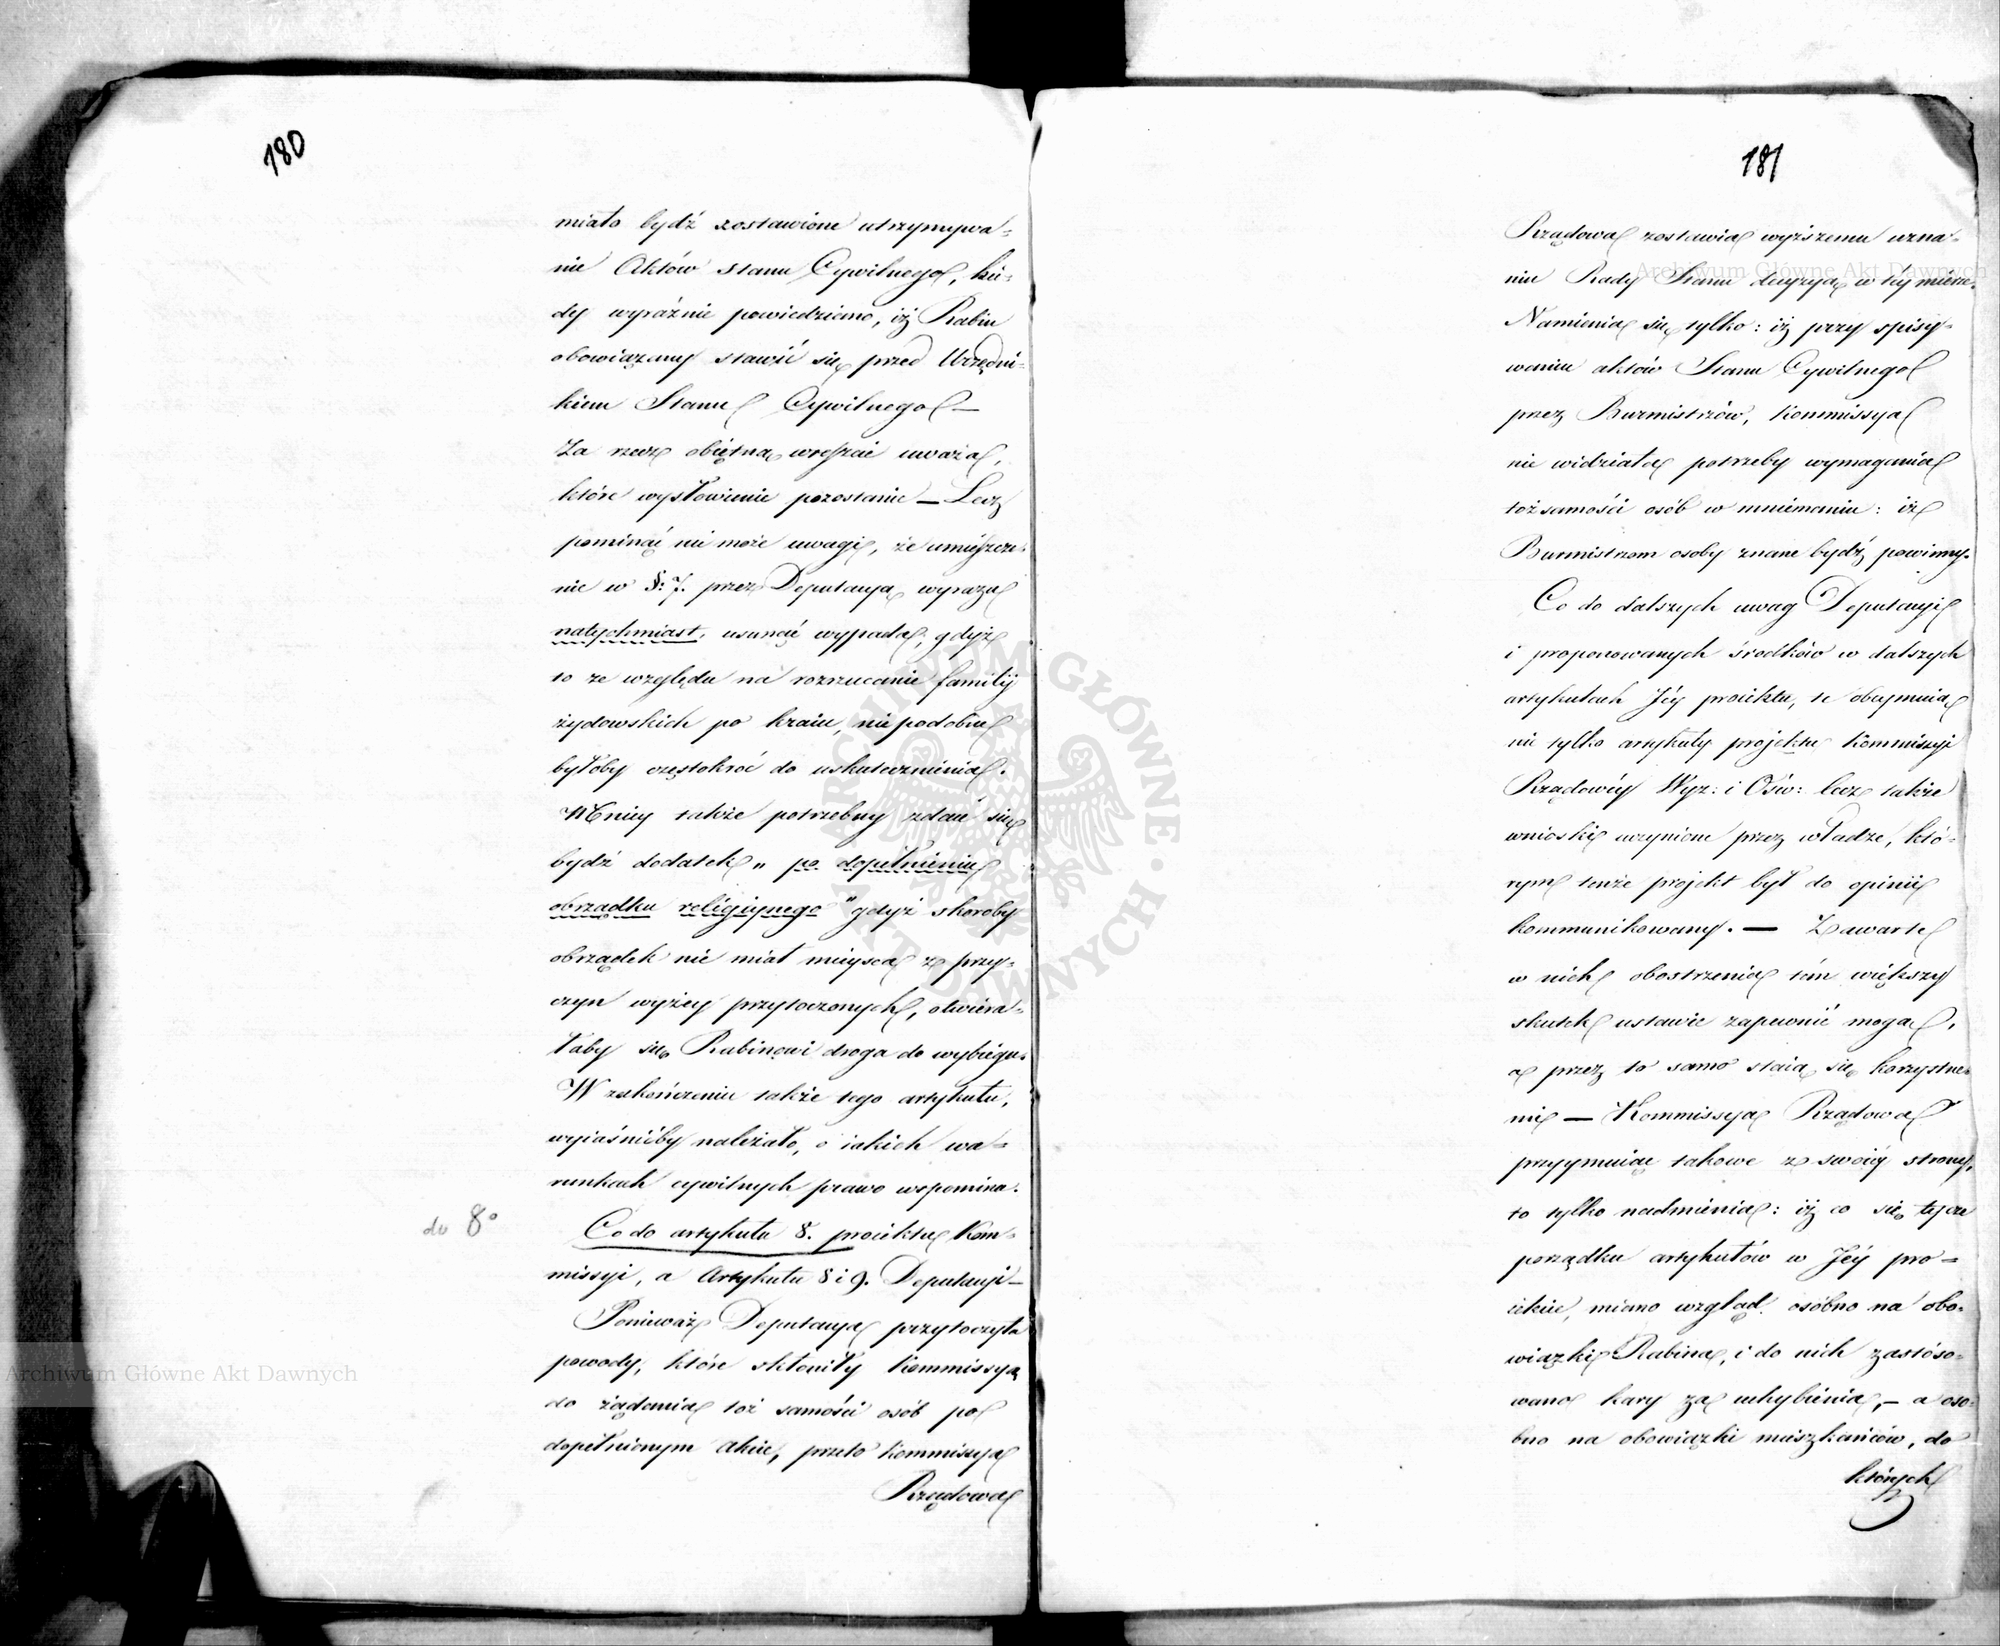 180
miało bydź zostawione utrzymywa=
nie Aktów stanu Cywilnego, kie=
dy wyraźnie powiedziano, iż Rabin
obowiązany stawić się przed Urzędni=
kiem Stanu Cywilnego —
Za rzecz obiętną wreszcie uważa,
które wysłowienie pozostanie — Lecz
pominąć nie może uwagi, że umieszcze=
nie w §: 7. przez Deputacyą wyrazu
natychmiast, usunąć wypada, gdyż
to ze względu na rozrzucanie familij
żydowskich po kraiu, niepodobne
byłoby częstokroć do uskutecznienia.
Mniey także potrzebny zdaie się
bydź dodatek „ po dopełnieniu
obrządku religiynego " gdyż skoroby
obrządek nie miał mieysca z przy=
czyn wyżey przytoczonych, otwiera=
łaby się Rabinowi droga do wybiegu.
W zakończeniu także tego artykułu,
wyiaśnićby należało, o iakich wa=
runkach cywilnych prawo wspomina.
do 8°
Co do artykułu 8. proiektu Kom=
missyi, a Artykułu 8 i 9. Deputacyi —
Ponieważ Deputacya przytoczyła
powody, które skłoniły Kommissyą
do żądania toż samości osób po
dopełnionym akcie, przeto Kommissya
Rządowa
181
Rządowa zostawia wyższemu uzna=
niu Rady Stanu decyzyą w téy mierze.
Namienia się tylko: iż przy spisy=
waniu aktów Stanu Cywilnego
przez Burmistrzów, Kommissya
nie widziała potrzeby wymagania
tożsamości osób w mniemaniu: iż
Burmistrzom osoby znane bydź powinny.
Co do dalszych uwag Deputacyi
i proponowanych środków w dalszych
artykułach Jéy proiektu, te obeymuią
nie tylko artykuły projektu Kommissyi
Rządowéy Wyz: i Ośw: lecz także
wnioski uczynione przez władze, któ=
rym tenże projekt był do opinii
kommunikowany. — Zawarte
w nich obostrzenia tém większy
skutek ustawie zapewnić mogą,
a przez to samo staią się korzystne=
mi — Kommissya Rządowa
przyymuiąc takowe z swéiéy strony,
to tylko nadmienia: iż co się tycze
porządku artykułów w Jéy pro=
iekcie, miano wzgląd osobno na obo=
wiązki Rabina, i do nich zastóso=
wano kary za uchybienia, — a oso=
bno na obowiązki mieszkańców, do
których
Archiwum Główne Akt Dawnych
Archiwum Główne Akt Dawnych
ARCHIWUM GŁÓWNE AKT DAWNYCH